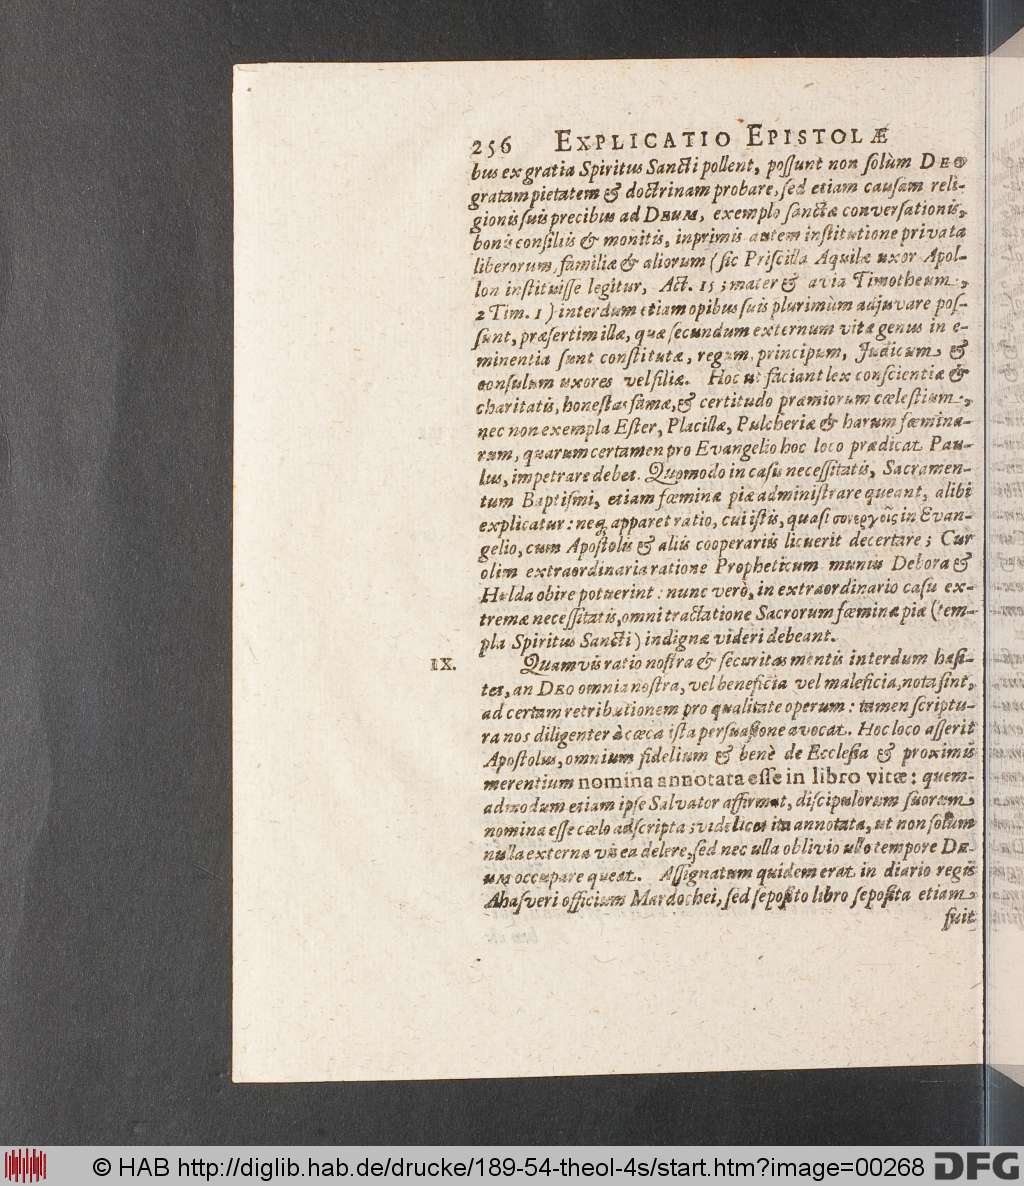 256 EXPLICATIO EPISTOLÆ
bus ex gratia Spiritus Sancti pollent, possunt non solùm DEO
gratam pietatem & doctrinam probare, sed etiam causam reli-
gionis suis precibus ad DEUM, exemplo sanctæ conversationis,
bonis consiliis & monitis, inprimis autem institutione privata
liberorum, familiæ & aliorum (sic Priscilla Aquilæ uxor Apol-
lon instituisse legitur, Act. 15; mater & avia Timotheum,
2 Tim. 1) interdum etiam opibus suis plurimùm adjuvare pos-
sunt, præsertim illæ, quæ secundum externum vitæ genus in e-
minentia sunt constitutæ, regum, principum, Judicum &
consulum uxores vel filiæ. Hoc ut faciant lex conscientiæ &
charitatis, honestas famæ, & certitudo præmiorum cœlestium,
nec non exempla Ester, Placillæ, Pulcheriæ & harum fœmina-
rum, quarum certamen pro Evangelio hoc loco prædicat Pau-
lus, impetrare debet. Quomodo in casu necessitatis, Sacramen-
tum Baptismi, etiam fœminæ piæ administrare queant, alibi
explicatur: neq; apparet ratio, cui istis, quasi συνεργοῖς in Evan-
gelio, cum Apostolis & aliis cooperariis licuerit decertare; Cur
olim extraordinaria ratione Propheticum munus Debora &
Hulda obire potuerint: nunc verò, in extraordinario casu ex-
tremæ necessitatis, omni tractatione Sacrorum fœminæ piæ (tem-
pla Spiritus Sancti) indignæ videri debeant.
IX. Quamvis ratio nostra & securitas mentis interdum hæsi-
tet, an DEO omnia nostra, vel beneficia vel maleficia, nota sint,
ad certam retributionem pro qualitate operum: tamen scriptu-
ra nos diligenter à cœca ista persuasione avocat. Hoc loco asserit
Apostolus, omnium fidelium & benè de Ecclesia & proximis
merentium nomina annotata esse in libro vitæ: quem-
admodum etiam ipse Salvator affirmat, discipulorum suorum
nomina esse cælo adscripta; videlicet ita annotata, ut non solùm
nulla externa vis ea delere, sed nec ulla oblivio ullo tempore DE-
UM occupare queat. Assignatum quidem erat in diario regis
Ahasveri officium Mardochei, sed seposito libro seposita etiam
fuit
© HAB http://diglib.hab.de/drucke/189-54-theol-4s/start.htm?image=00268 DFG